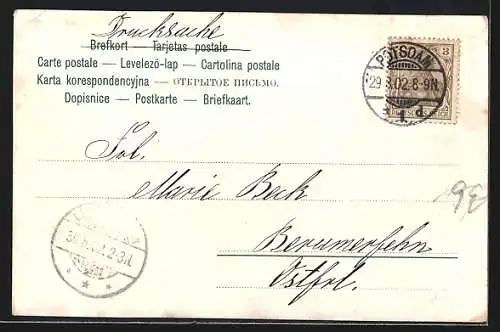 Drucksache
Brefkort — Tarjetas postale
Carte postale — Levelező-lap — Cartolina postale
Karta korespondencyjna — ОТКРЫТОЕ ПИСЬМО.
Dopisnice — Postkarte — Briefkaart.
3
POTSDAM
29 02.8-9N.
1 d
Frl.
Marie Beck
Berumerfehn
Ostfrl.
2-3N